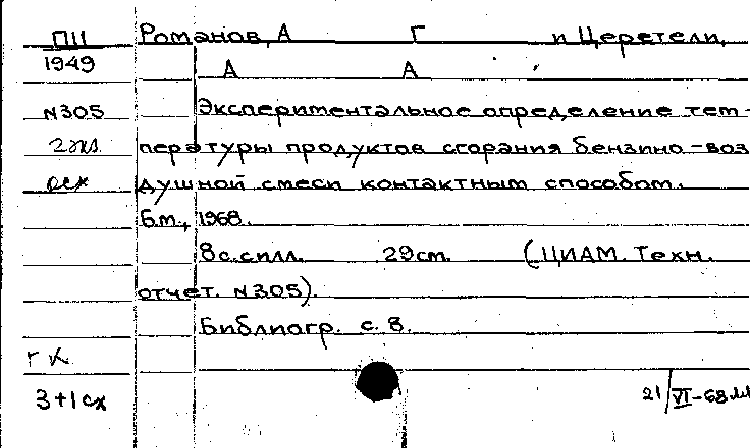 П11 Романов, А Г и Церетели,
1949 А А
N305 Экспериментальное определение тем-
2 экз. пературы продуктов сгорания бензино-воз
душной смеси контактным способом.
Б.м., 1968.
8с.силл. 29см. (ЦИАМ. Техн.
отчет. N305).
Библиогр. с. 8.
г к
3+1сх 21/VI-68